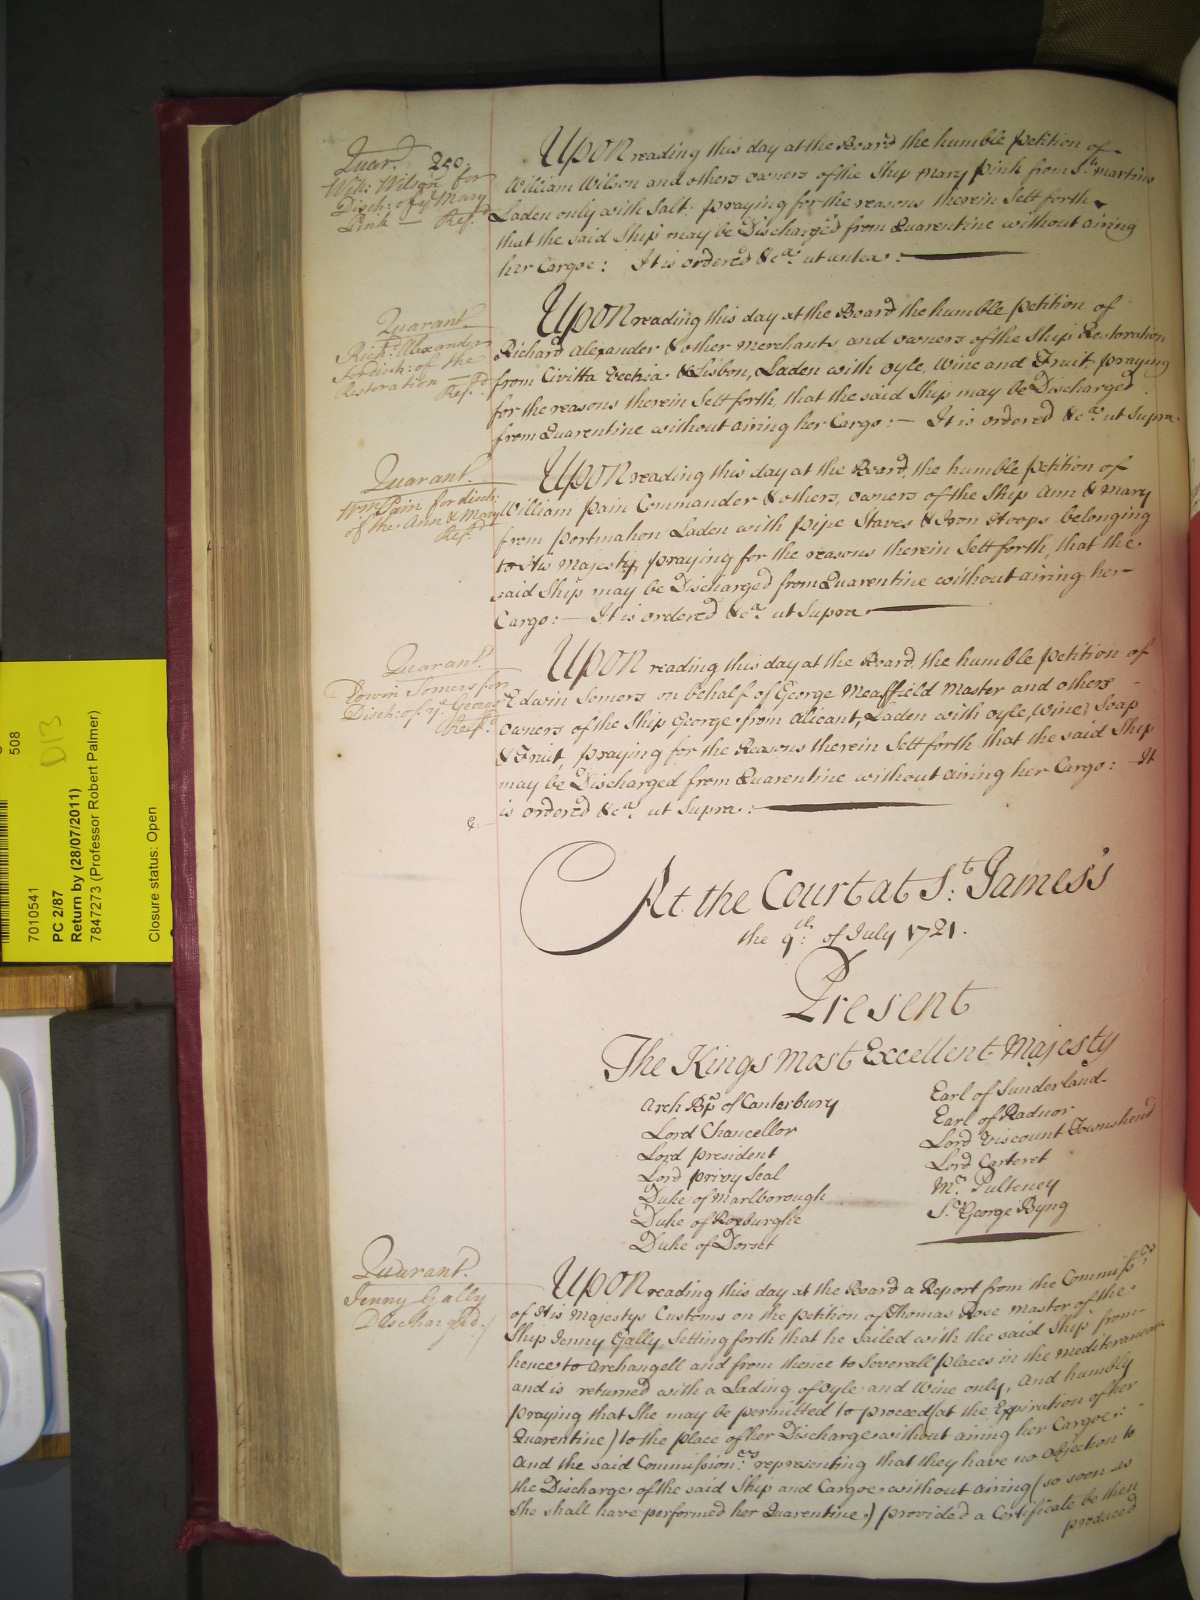 Quar.t 250.
Will: Wilson for
Disch: of ye Mary
Pink — Ref.d
UPON reading this day at the Board the humble Petition of
William Wilson and others owners of the Ship Mary Pink from St. Martins
Laden only with Salt praying for the reasons therein Sett forth
that the said Ship may be Discharged from Quarentine without airing
her Cargoe: It is ordered &ca. ut antea:
Quarant.
Rich.d Alexander
for disch: of the
Restoration — Ref.d
UPON reading this day at the Board the humble Petition of
Richard Alexander & other Merchants and owners of the Ship Restoration
from Civitta Vechia & Lisbon, Laden with oyle, Wine and Fruit praying
for the reasons therein Sett forth that the said Ship may be Discharged
from Quarentine without airing her Cargo: — It is ordered &ca. ut Supra.
Quarant.
Wm. Pain for disch:
of the Ann & Mary
Ref.d
UPON reading this day at the Board, the humble Petition of
William Pain Commander & others, owners of the Ship Ann & Mary
from Portmahon Laden with Pipe Staves & Iron Hoops belonging
to His Majesty, praying for the reasons therein Sett forth, that the
said Ship may be Discharged from Quarentine without airing her
Cargo: — It is ordered &ca. ut Supra
Quarant.
Edwin Somers for
Disch: of ye George
Ref.d
UPON reading this day at the Board, the humble Petition of
Edwin Somers on behalf of George Meaffield Master and others
owners of the Ship George from Alicant, Laden with oyle, Wine, Soap
& Fruit, praying for the Reasons therein Sett forth that the said Ship
may be Discharged from Quarentine without airing her Cargo: — It
is ordered &ca. ut Supra:
At the Court at St. James's
the 9th. of July 1721.
Present
The Kings most Excellent Majesty
Arch Bp. of Canterbury
Lord Chancellor
Lord president
Lord privy Seal
Duke of Marlborough
Duke of Roxburghe
Duke of Dorset
Earl of Sunderland
Earl of Radnor
Lord Viscount Townshend
Lord Carteret
Mr. Pulteney
Sr. George Byng
Quarant.
Jenny Gally
Discharged.
UPON reading this day at the Board a Report from the Commissrs.
of His Majestys Customs on the petition of Thomas Rose Master of the
Ship Jenny Gally, Setting forth that he Sailed with the said Ship from
hence to Archangell and from thence to Severall places in the Mediteranean
and is returned with a Lading of oyle and Wine only, And humbly
praying that She may be permitted to proceed (at the Expiration of her
Quarentine) to the place of her Discharge without airing her Cargoe:
And the said Commissioners. representing that they have no objection to
the Discharge of the said Ship and Cargoe without airing (so soon as
She shall have performed her Quarentine) provided a Certificate be then
produced
508
D13
7010541
PC 2/87
Return by (28/07/2011)
7847273 (Professor Robert Palmer)
Closure status: Open